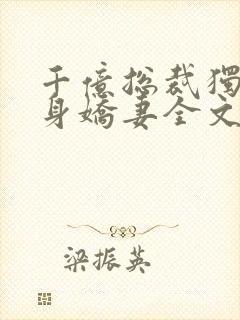 千億總裁獨
身嬌妻全文
梁振英